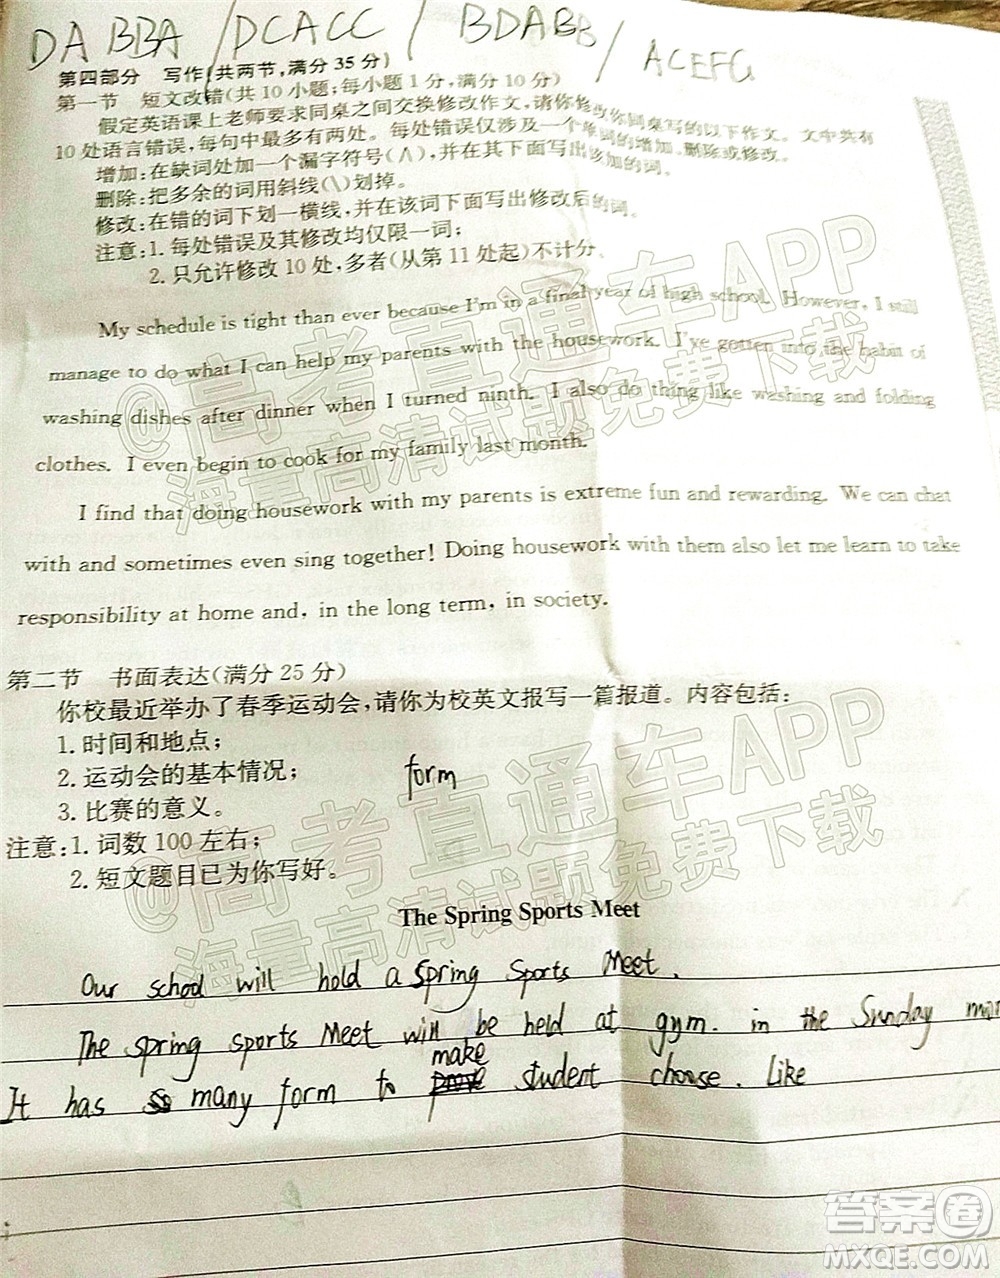 DABBA / DCACC / BDABB / ACEFG
第四部分 写作(共两节,满分 35 分)
第一节 短文改错(共 10 小题;每小题 1 分,满分 10 分)
假定英语课上老师要求同桌之间交换修改作文,请你修改你同桌写的以下作文。文中共有
10 处语言错误,每句中最多有两处。每处错误仅涉及一个单词的增加、删除或修改。
增加:在缺词处加一个漏字符号(∧),并在其下面写出该加的词。
删除:把多余的词用斜线(\)划掉。
修改:在错的词下划一横线,并在该词下面写出修改后的词。
注意:1. 每处错误及其修改均仅限一词;
2. 只允许修改 10 处,多者(从第 11 处起)不计分。
My schedule is tight than ever because I'm in a final year of high school. However, I still
manage to do what I can help my parents with the housework. I've gotten into the habit of
washing dishes after dinner when I turned ninth. I also do thing like washing and folding
clothes. I even begin to cook for my family last month.
I find that doing housework with my parents is extreme fun and rewarding. We can chat
with and sometimes even sing together! Doing housework with them also let me learn to take
responsibility at home and, in the long term, in society.
第二节 书面表达(满分 25 分)
你校最近举办了春季运动会,请你为校英文报写一篇报道。内容包括:
1. 时间和地点;
2. 运动会的基本情况;
form
3. 比赛的意义。
注意:1. 词数 100 左右;
2. 短文题目已为你写好。
The Spring Sports Meet
Our school will hold a spring sports Meet.
The spring sports Meet will be held at gym. in the Sunday
make
It has many form to student choose. Like
@高考直通车APP
海量高清试题免费下载
@高考直通车APP
海量高清试题免费下载
答案圈
MXQE.COM